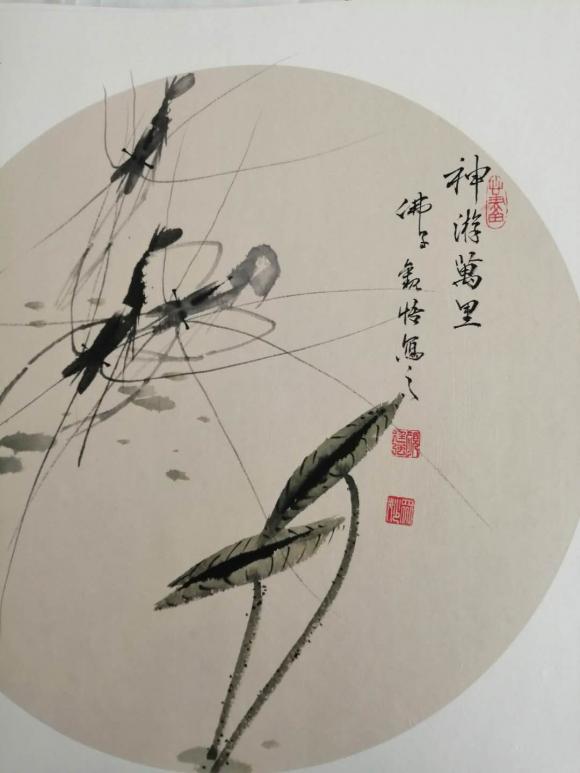 神游萬里
佛子觀悟寫之